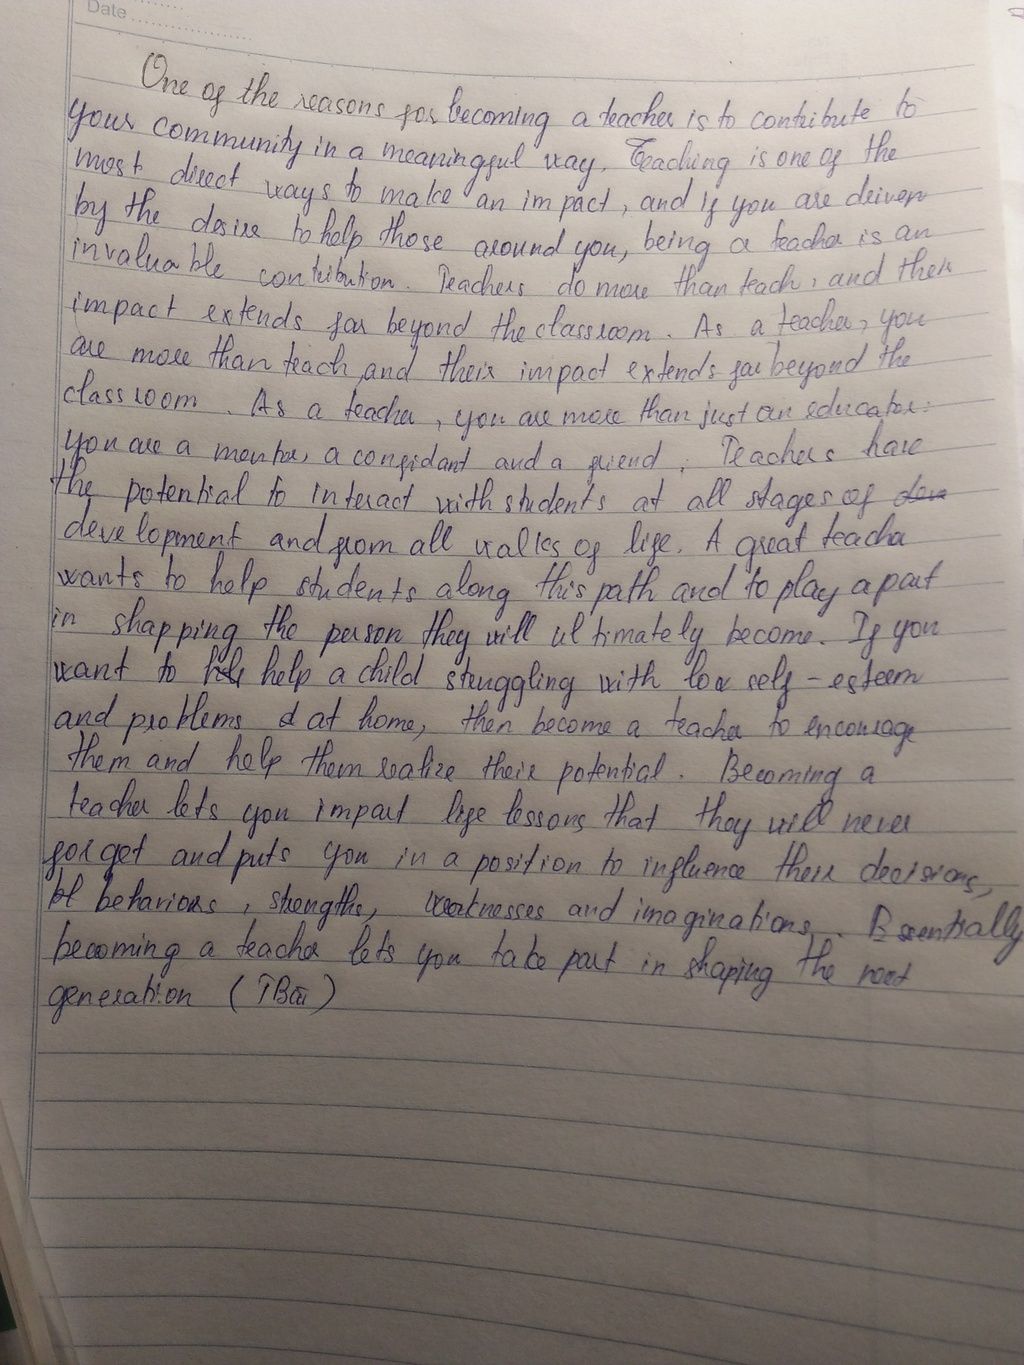 Date
One of the reasons for becoming a teacher is to contribute to
your community in a meaningful way. Teaching is one of the
most direct ways to make an impact, and if you are driven
by the desire to help those around you, being a teacher is an
invaluable contribution. Teachers do more than teach, and their
impact extends far beyond the classroom. As a teacher, you
are more than teach, and their impact extends far beyond the
classroom. As a teacher, you are more than just an educator:
you are a mentor, a confidant and a friend. Teachers have
the potential to interact with students at all stages of
development and from all walks of life. A great teacher
wants to help students along this path and to play a part
in shapping the person they will ultimately become. If you
want to help a child struggling with low self-esteem
and problems at home, then become a teacher to encourage
them and help them realize their potential. Becoming a
teacher lets you impart life lessons that they will never
forget and puts you in a position to influence their decisions,
behaviors, strengths, weaknesses and imaginations. Essentially
becoming a teacher lets you take part in shaping the next
generation